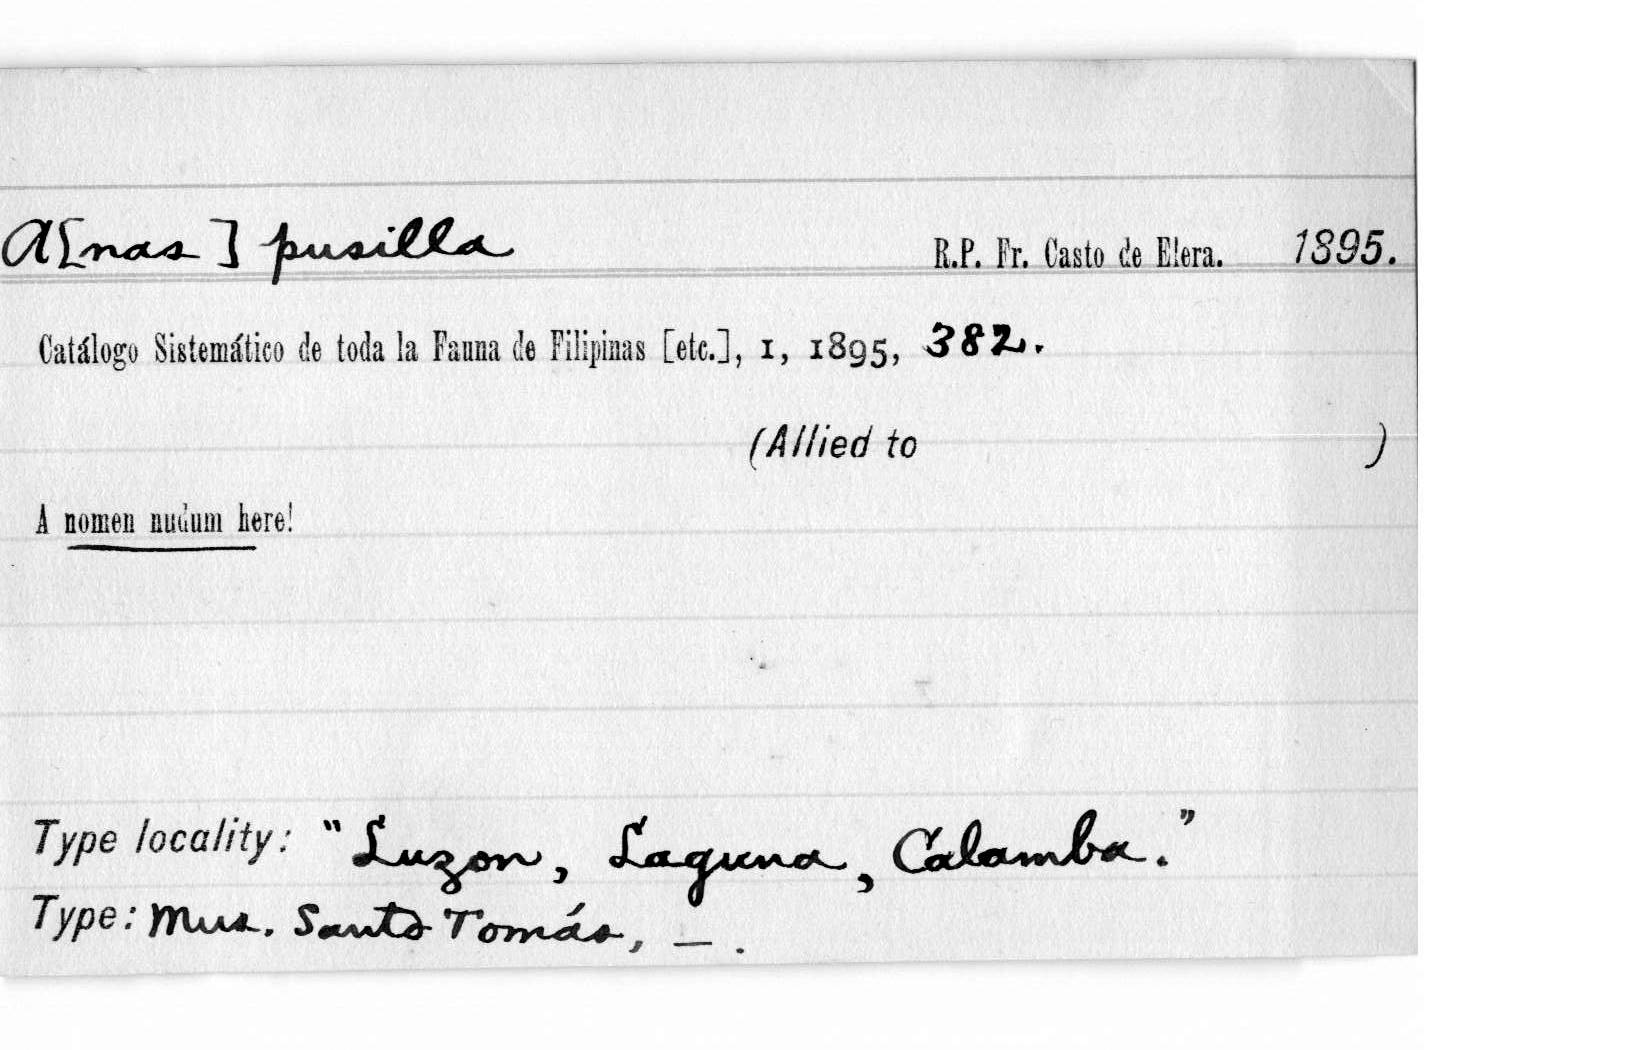 A[nas] pusilla R.P. Fr. Casto de Elera. 1895.
Catálogo Sistemático de toda la Fauna de Filipinas [etc.], 1, 1895, 382.
(Allied to )
A nomen nudum here!
Type locality: "Luzon, Laguna, Calamba."
Type: Mus. Santo Tomás, — .